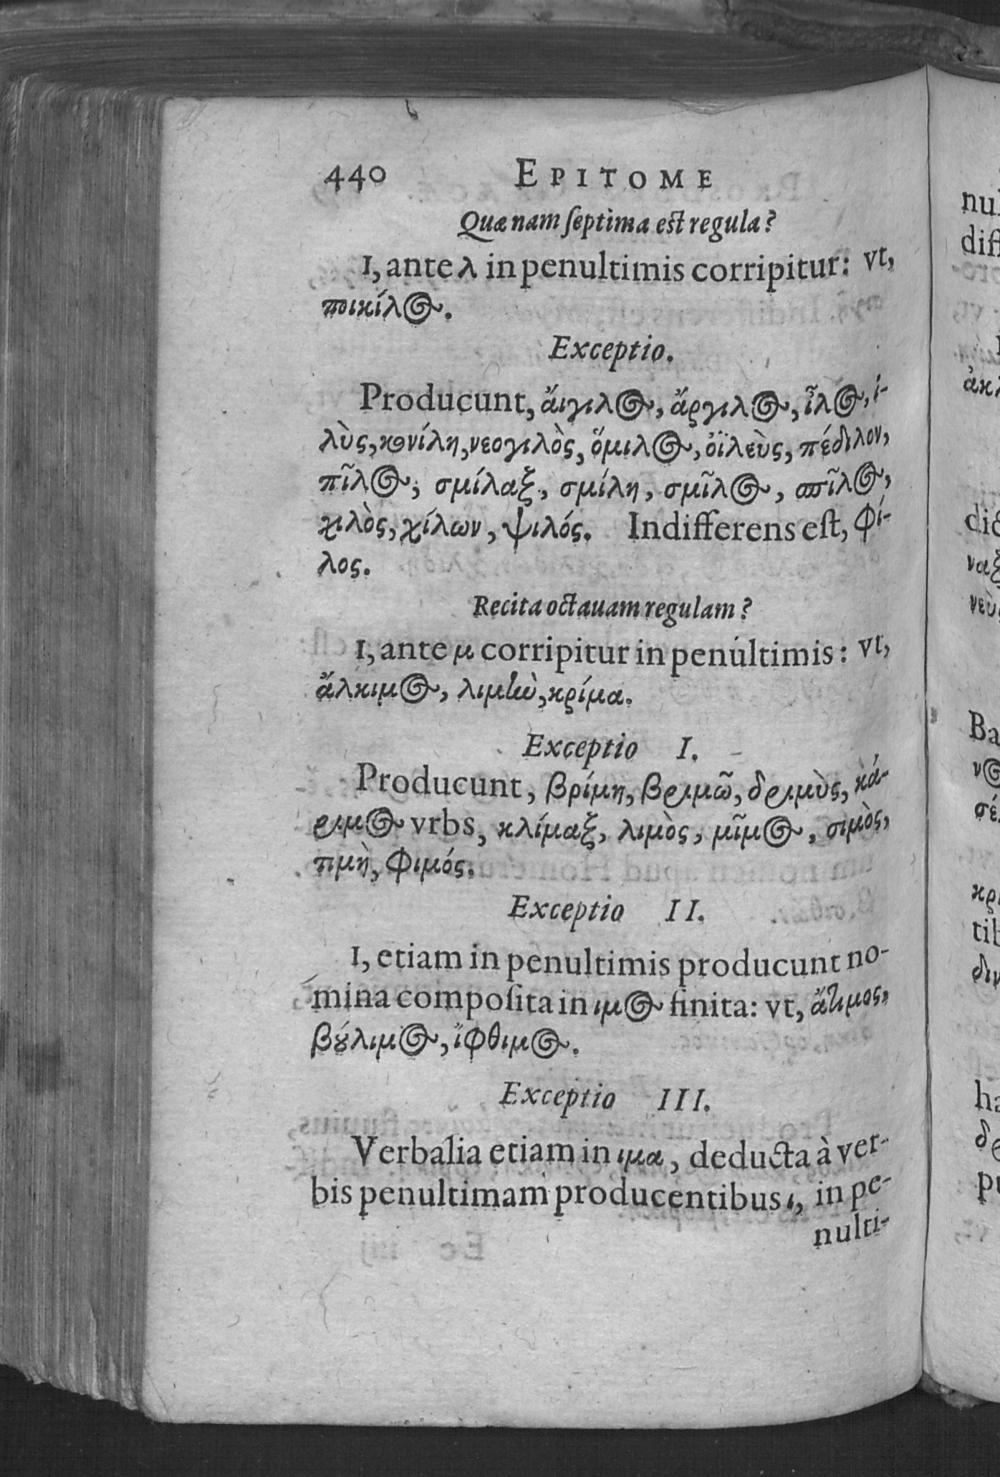 440 EPITOME
Quæ nam ſeptima eſt regula?
I, ante λ in penultimis corripitur: vt,
ποικίλος.
Exceptio.
Producunt, ἄιγιλος, ἄργιλος, ἶλος, ἰ-
λὺς, κονίλη, νεογιλὸς, ὅμιλος, ὀϊλεὺς, πέδιλον,
πῖλος, σμίλαξ, σμίλη, σμῖλος, σπῖλος,
χιλὸς, χίλων, ψιλός. Indifferens eſt, φί-
λος.
Recita octauam regulam?
I, ante μ corripitur in penultimis: vt,
ἄλκιμος, λιμὼ, κρίμα.
Exceptio I.
Producunt, βρίμη, βριμῶ, δριμὺς, κά-
ριμος vrbs, κλίμαξ, λιμὸς, μῖμος, σιμὸς,
τιμὴ, φιμός.
Exceptio II.
I, etiam in penultimis producunt no-
mina compoſita in ιμος finita: vt, ἄτιμος,
βούλιμος, ἴφθιμος.
Exceptio III.
Verbalia etiam in ιμα, deducta à ver-
bis penultimam producentibus ι, in pe-
nulti-
nul
diff
ἀκλ
dic
ναξ
νεὺ
Ba
νος
σέλ
κρι
tib
διν
ha
δρ
pu